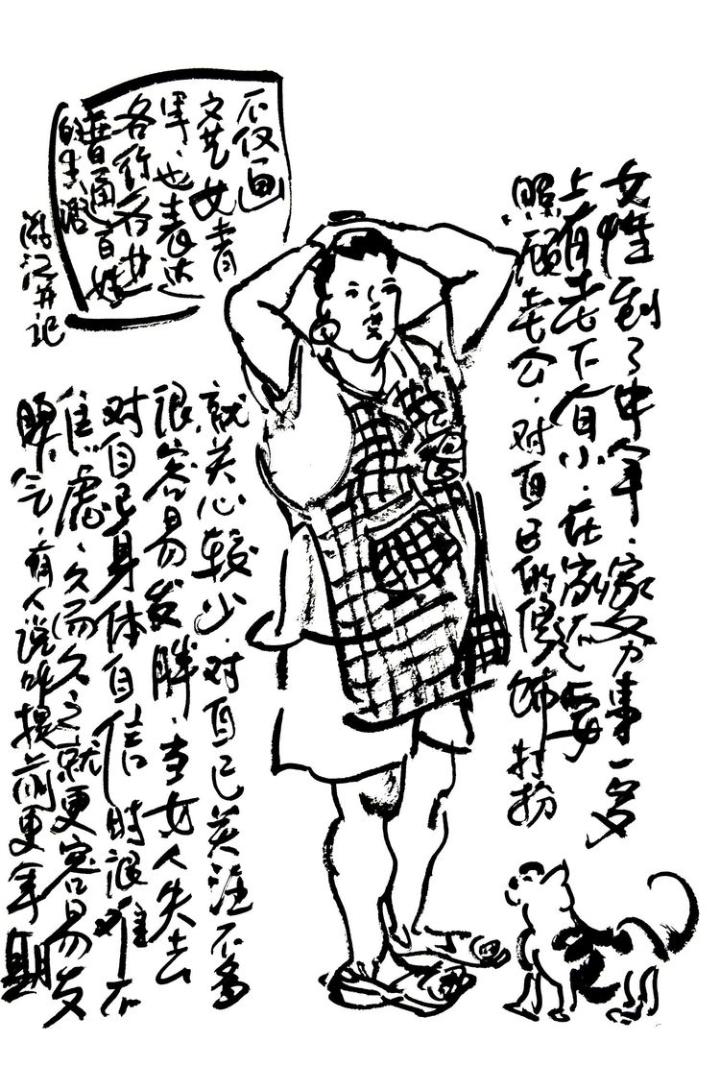 女性到了中年.家务事一多
上有老下有小.在家还要
照顾老公.对自己的修饰打扮
就关心较少.对自己关注不多
很容易发胖.当女人失去
对自己身体自信时很难不
焦虑.久而久之就更容易发
脾气.有人说叫提前更年期
不仅画
文艺女青
年,也表达
各行各业
普通百姓
的生活